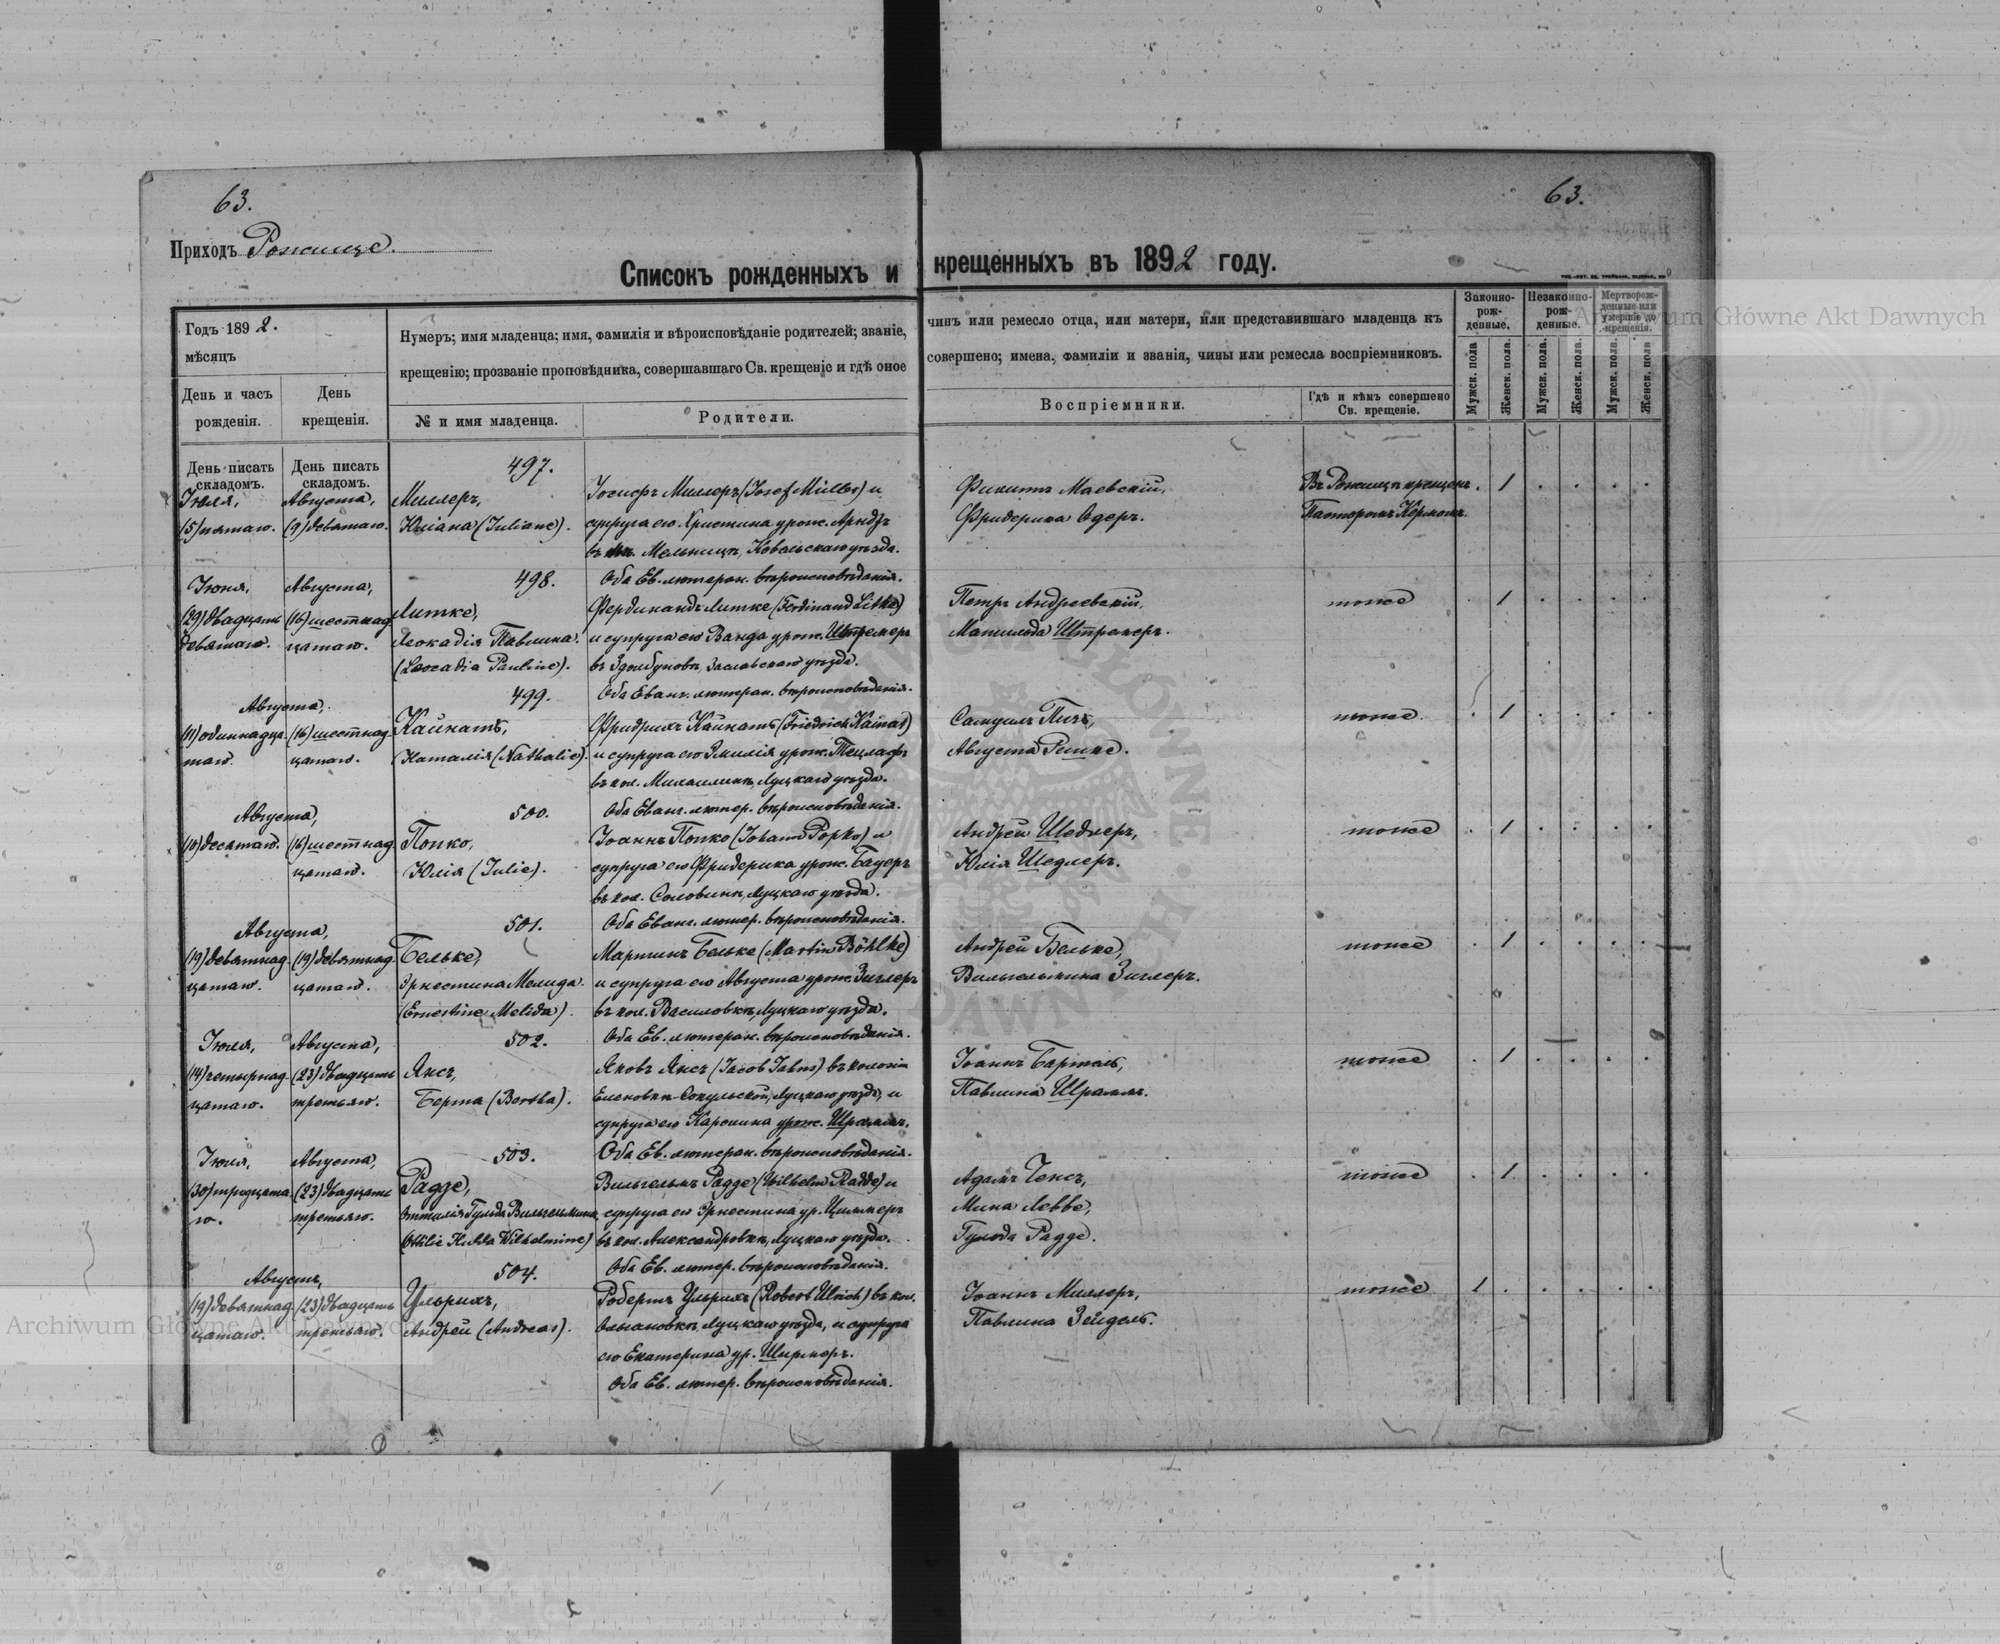 63.
63.
Приходъ Рожище.
Списокъ рожденныхъ и крещенныхъ въ 1892 году.
Годъ 1892.
мѣсяцъ
День и часъ рожденія.
День крещенія.
Нумеръ; имя младенца; имя, фамилія и вѣроисповѣданіе родителей; званіе, чинъ или ремесло отца, или матери, или представившаго младенца къ
крещенію; прозваніе проповѣдника, совершавшаго Св. крещеніе и гдѣ оное совершено; имена, фамиліи и званія, чины или ремесла воспріемниковъ.
№ и имя младенца.
Родители.
Воспріемники.
Гдѣ и кѣмъ совершено Св. крещеніе.
Законно-рож-денные.
Незаконно-рож-денные.
Мертворож-денные или умершіе до крещенія.
Мужск. пола
Женск. пола.
Мужск. пола.
Женск. пола.
Мужск. пола.
Женск. пола
День писать складомъ.
День писать складомъ.
497.
Іюля,
(5) пятаго.
Августа,
(9) девятаго.
Миллеръ,
Юліана (Juliane).
Іосифъ Миллеръ (Josef Müller) и
супруга его Христина урож. Арндъ
въ Мельницѣ, Ковельскаго уѣзда.
Оба Ев. лютеран. вѣроисповѣданія.
Маевскій,
Фридерика Одеръ.
Въ Рожищѣ крещенъ.
Пасторомъ Кермомъ.
1
498.
Іюня,
(29) двадцать
девятаго.
Августа,
(16) шестнад
цатаго.
Литке,
Леокадія Павлина.
(Leocadia Pauline).
Фердинандъ Литке (Ferdinand Litke)
и супруга его Ванда урож. Штремеръ
въ Здолбуновѣ, Заславскаго уѣзда.
Оба Еванг. лютеран. вѣроисповѣданія.
Петръ Андреевскій,
Матильда Штремеръ.
тоже
1
499.
Августа,
(11) одиннадца
таго.
(16) шестнад
цатаго.
Кайнатъ,
Наталія (Nathalie).
Фридрихъ Кайнатъ (Friedrich Kainat)
и супруга его Эмилія урож. Тецлафъ
въ кол. Михаилинѣ, Луцкаго уѣзда.
Оба Еванг. лютер. вѣроисповѣданія.
Самуилъ Пичъ,
Августа Решке.
тоже.
1
500.
Августа,
(10) десятаго.
(16) шестнад
цатаго.
Попко,
Юлія (Julie).
Іоаннъ Попко (Johann Popko) и
супруга его Фридерика урож. Бауеръ
въ кол. Соловинѣ, Луцкаго уѣзда.
Оба Еванг. лютер. вѣроисповѣданія.
Андрей Шедлеръ,
Юлія Шедлеръ.
тоже
1
501.
Августа,
(19) девятнад
цатаго.
(19) девятнад
цатаго.
Бельке,
Эрнестина Мелида.
(Ernestine Melida).
Мартинъ Бельке (Martin Böhlke)
и супруга его Августа урож. Зиглеръ
въ кол. Василовкѣ, Луцкаго уѣзда.
Оба Ев. лютеран. вѣроисповѣданія.
Андрей Бельке,
Вильгельмина Зиглеръ.
тоже
1
502.
Іюля,
(14) четырнад
цатаго.
Августа,
(23) двадцать
третьяго.
Янсъ,
Берта (Bertha).
Яковъ Янсъ (Jacob Jahns) въ колоніи
Еленовкѣ-Сокульской, Луцкаго уѣзда, и
супруга его Каролина урож. Шраммъ.
Оба Ев. лютеран. вѣроисповѣданія.
Іоаннъ Бартель,
Павлина Шраммъ.
тоже
1
503.
Іюля,
(30) тридцата
го.
Августа,
(23) двадцать
третьяго.
Радде,
Оттилія Гульда Вильгельмина
(Ottilie Hulda Wilhelmine)
Вильгельмъ Радде (Wilhelm Radde) и
супруга его Эрнестина ур. Циммеръ
въ кол. Александровкѣ, Луцкаго уѣзда.
Оба Ев. лютер. вѣроисповѣданія.
Адамъ Генсъ,
Мина Левве,
Гульда Радде.
тоже
1
504.
Августа,
(19) девятнад
цатаго.
(23) двадцать
третьяго.
Ульрихъ,
Андрей (Andreas).
Робертъ Ульрихъ (Robert Ulrich) въ кол.
Ольгановкѣ, Луцкаго уѣзда, и супруга
его Екатерина ур. Ширмеръ.
Оба Ев. лютер. вѣроисповѣданія.
Іоаннъ Миллеръ,
Павлина Зейдель.
тоже
1
Archiwum Główne Akt Dawnych
Archiwum Główne Akt Dawnych